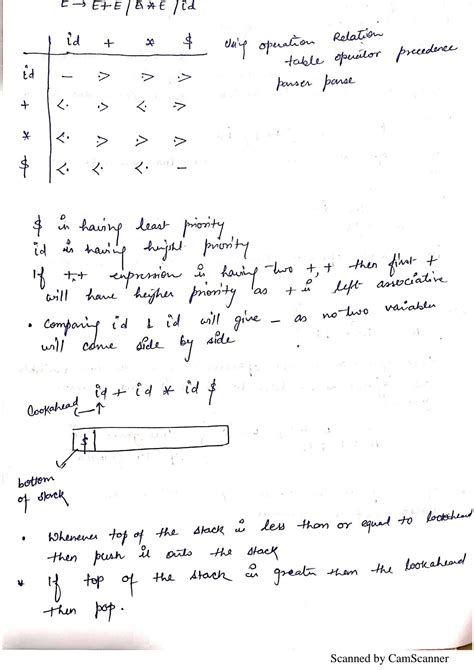 E → E+E / E*E / id
id + * $
Using operation Relation
table operator precedence
parser parse
id – ·> ·> ·>
+ <· ·> <· ·>
* <· ·> ·> ·>
$ <· <· <· –
$ is having least priority
id is having height priority
If +,+ expression is having two +,+ then first +
will have heigher priority as + is left associative
• Comparing id & id will give – as no two variables
will come side by side
Lookahead id + id * id $
$
bottom
of stack
• Whenever top of the stack is less than or equal to lookahead
then push it onto the stack
* If top of the stack is greater then the lookahead
then pop.
Scanned by CamScanner